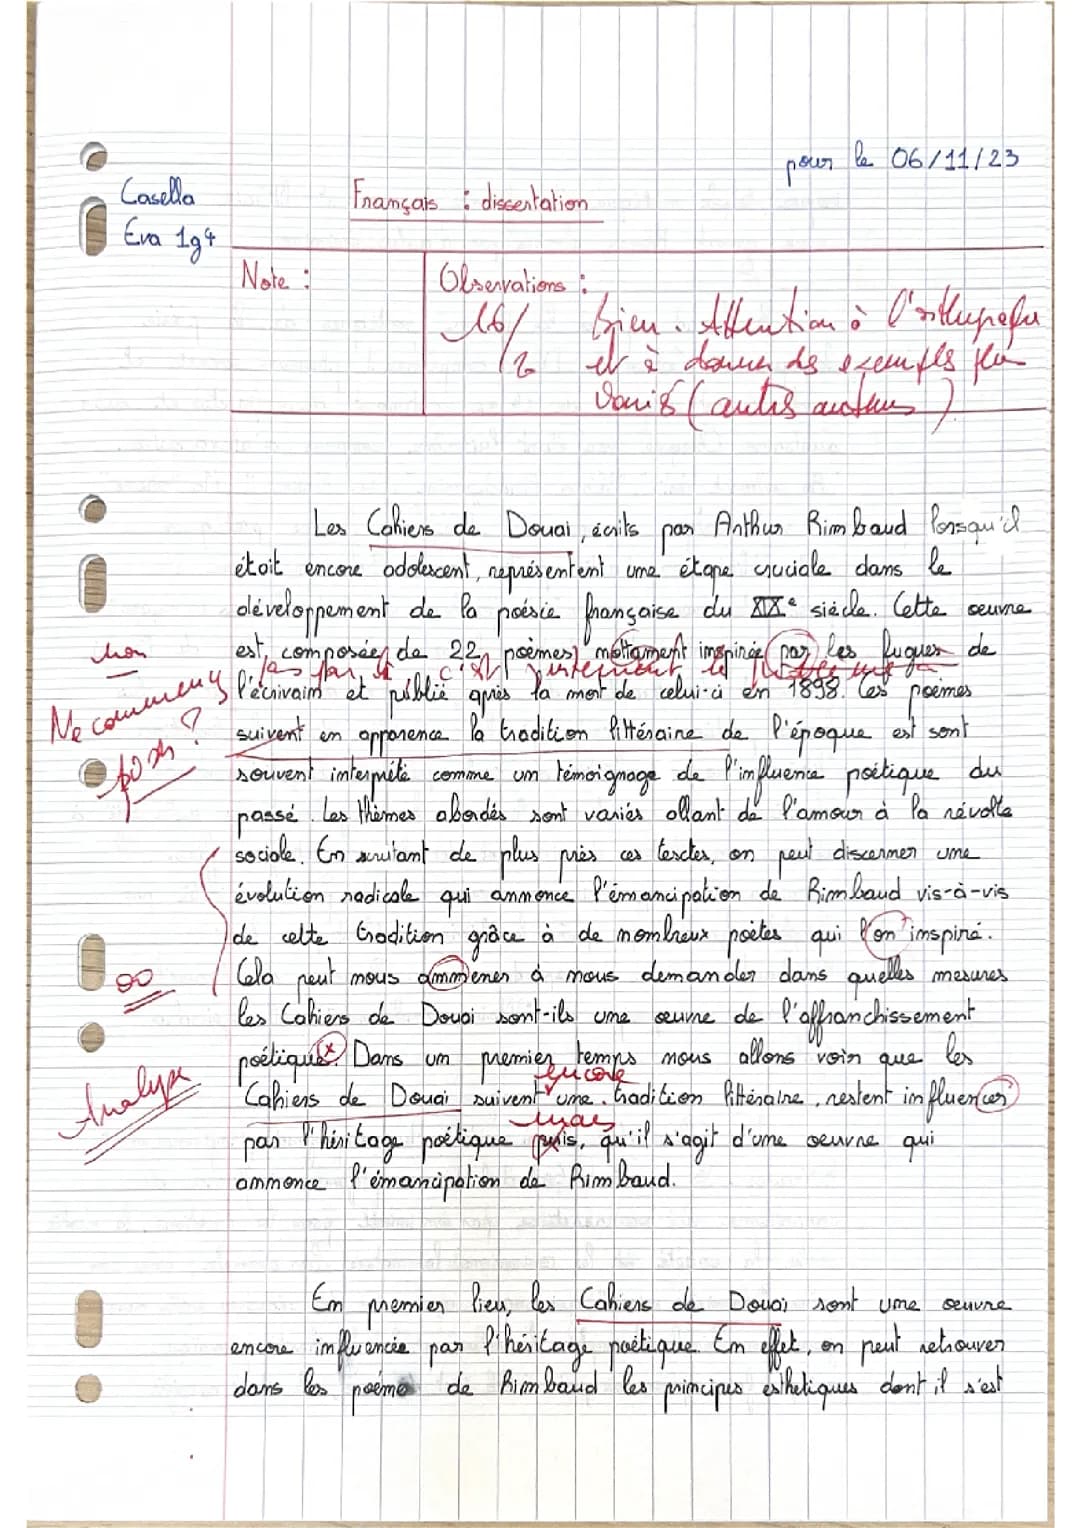 pour le 06/11/23
Casella
Eva 1g4
Français : dissertation
Note :
Observations :
16/
2
Bien. Attention à l'orthographe
et à donner des exemples plus
variés (autres auteurs)
Les Cahiers de Douai, écrits par Arthur Rimbaud lorsqu'il
était encore adolescent, représentent une étape cruciale dans le
développement de la poésie française du XIXe siècle. Cette oeuvre
non
est composées de 22 poèmes, nottament inspirée par les fugues de
pas par c'est justement le
Ne commencez
pas ?
l'écrivain et publié après la mort de celui-ci en 1898. Ces poèmes
suivent en apparence la tradition littéraire de l'époque est sont
souvent interprété comme un témoignage de l'influence poétique du
passé. Les thèmes abordés sont variés allant de l'amour à la révolte
sociale. En scrutant de plus près ces textes, on peut discerner une
évolution radicale qui annonce l'émancipation de Rimbaud vis-à-vis
de cette tradition grâce à de nombreux poètes qui l'on inspiré.
Cela peut nous ammener à nous demander dans quelles mesures
les Cahiers de Douai sont-ils une œuvre de l'affranchissement
poétique. Dans un premier temps nous allons voir que les
encore
Analyse
Cahiers de Douai suivent une tradition littéraire, restent influencer
mais
par l'héritage poétique puis, qu'il s'agit d'une oeuvre qui
annonce l'émancipation de Rimbaud.
En premier lieu, les Cahiers de Douai sont une oeuvre
encore influencée par l'héritage poétique. En effet, on peut retrouver
dans les poème de Rimbaud les principes esthetiques dont il s'est